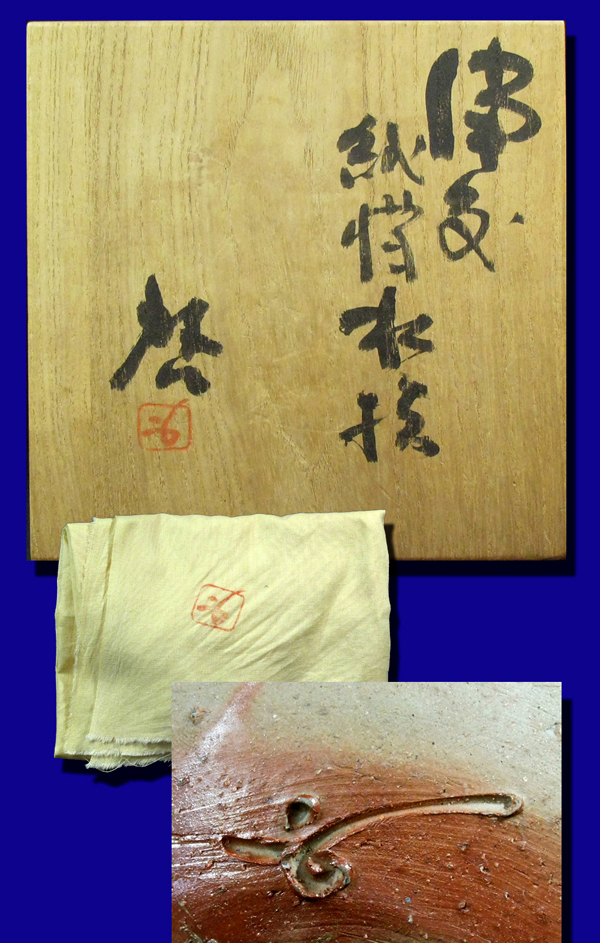 備前
緋襷水指
啓